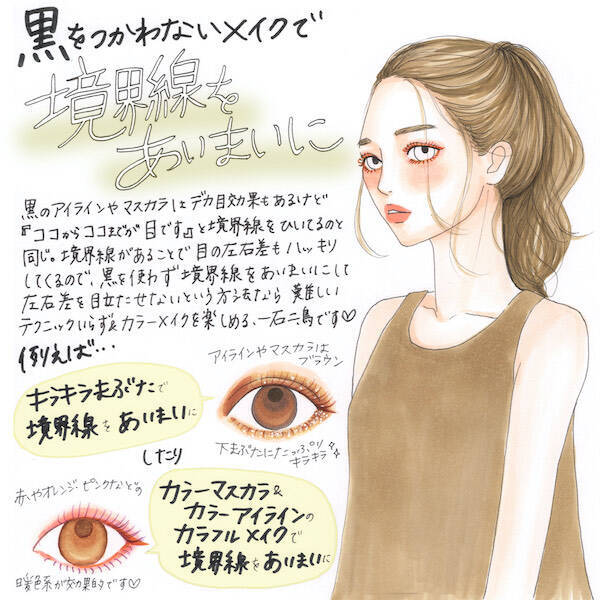 黒をつかわないメイクで
境界線を
あいまいに
黒のアイラインやマスカラはデカ目効果もあるけど
『ココからココまでが目です』と境界線をひいてるのと
同じ。境界線があることで目の左右差もハッキリ
してくるので、黒を使わず境界線をあいまいにして
左右差を目立たせないという方法なら難しい
テクニックいらず&カラーメイクを楽しめる、一石二鳥です♡
例えば…
アイラインやマスカラは
ブラウン
キラキラまぶたで
境界線をあいまいに
下まぶたにたっぷり
キラキラ
したり
赤やオレンジ・ピンクなどの
カラーマスカラ&
カラーアイラインの
カラフルメイクで
境界線をあいまいに
暖色系が効果的です♡